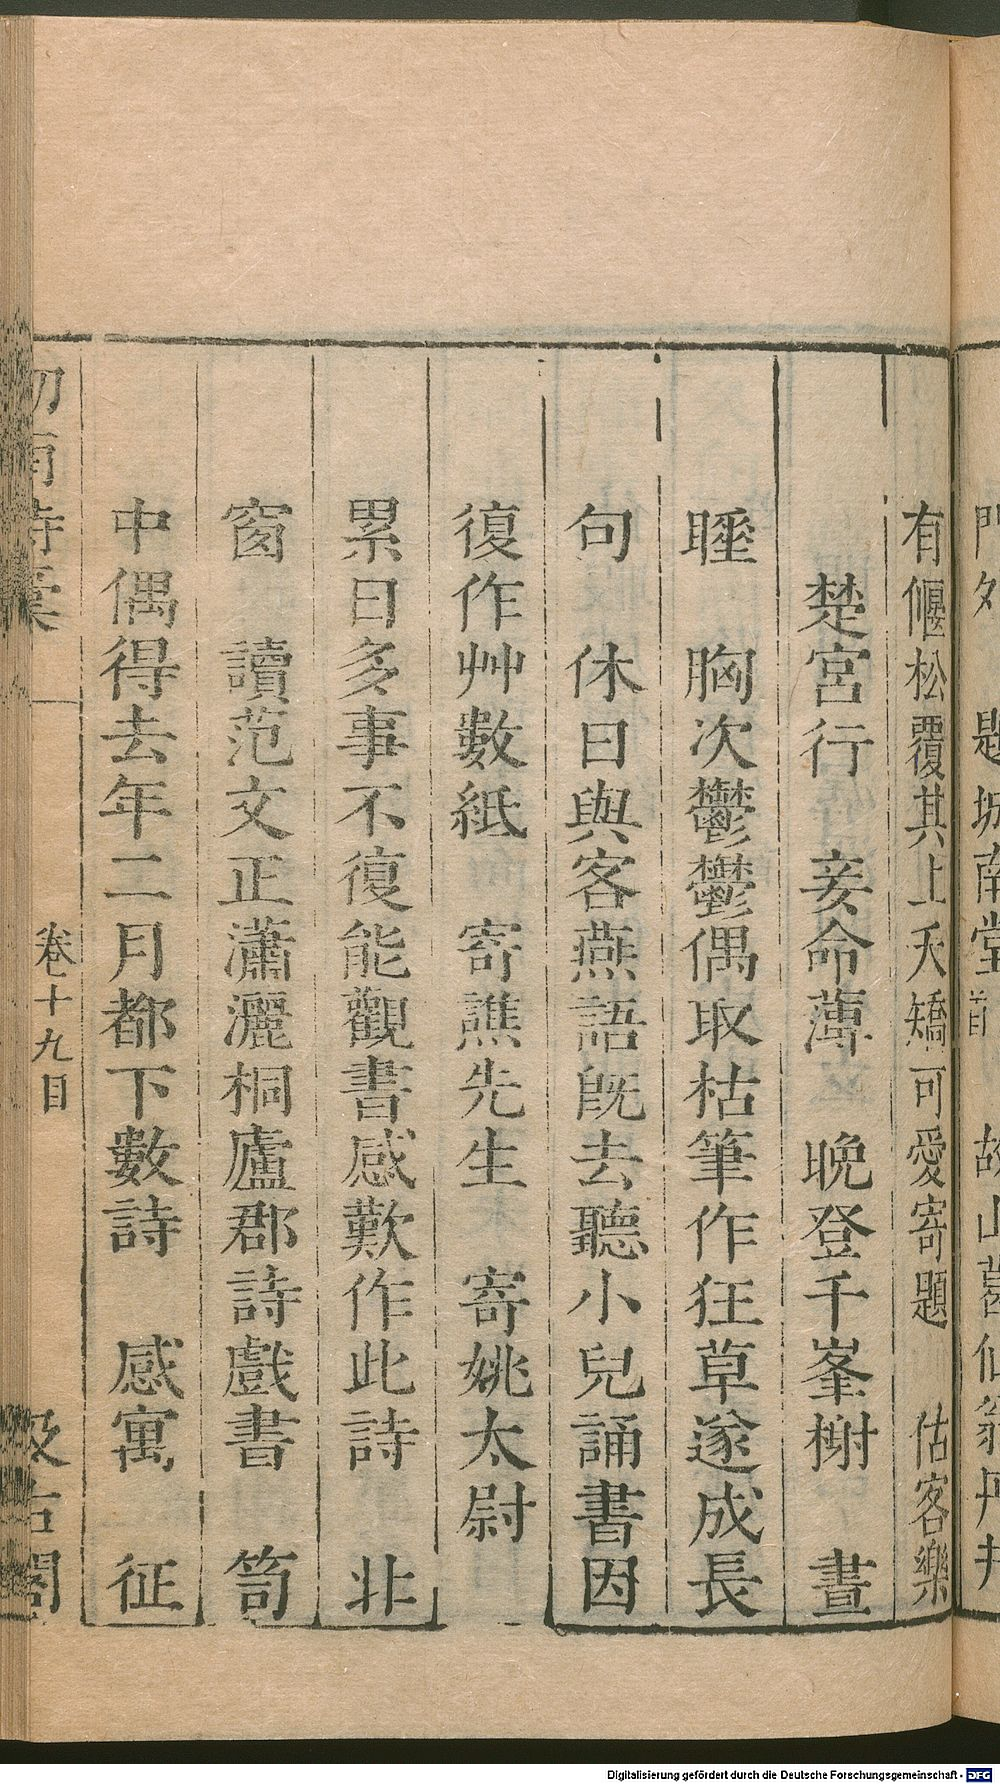 題城南堂
故山葛仙翁丹井
有偃松覆其上夭矯可愛寄題　估客樂
楚宮行　妾命薄　晚登千峯榭　晝
睡　胸次鬱鬱偶取枯筆作狂草遂成長
句　休日與客燕語既去聽小兒誦書因
復作艸數紙　寄譙先生　寄姚太尉
累日多事不復能觀書感歎作此詩　北
窗　讀范文正瀟灑桐廬郡詩戲書　笥
中偶得去年二月都下數詩　感寓　征
卷十九目
汲古閣
Digitalisierung gefördert durch die Deutsche Forschungsgemeinschaft - DFG